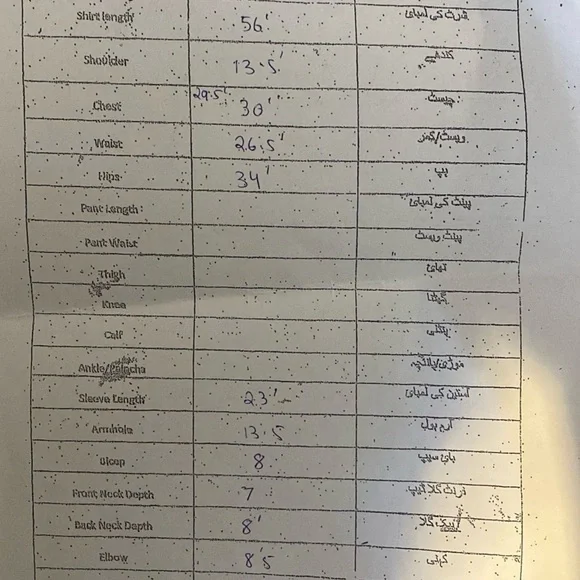 Shirt Length 56' شرٹ کی لمبائی
Shoulder 13.5' کندھے
29.5'
Chest 30' چیسٹ
Waist 26.5' ویسٹ/کمر
Hips 34' ہپ
Pant Length: پینٹ کی لمبائی
Pant Waist پینٹ ویسٹ
Thigh تھائی
Knee گھٹنا
Calf پنڈلی
Ankle/Paincha موڑی/پائنچہ
Sleeve Length 23' آستین کی لمبائی
Armhole 13.5 آرم ہول
Bicep 8 بائی سیپ
Front Neck Depth 7 فرنٹ گلا ڈیپ
Back Neck Depth 8' بیک گلا
Elbow 8'5 کہنی